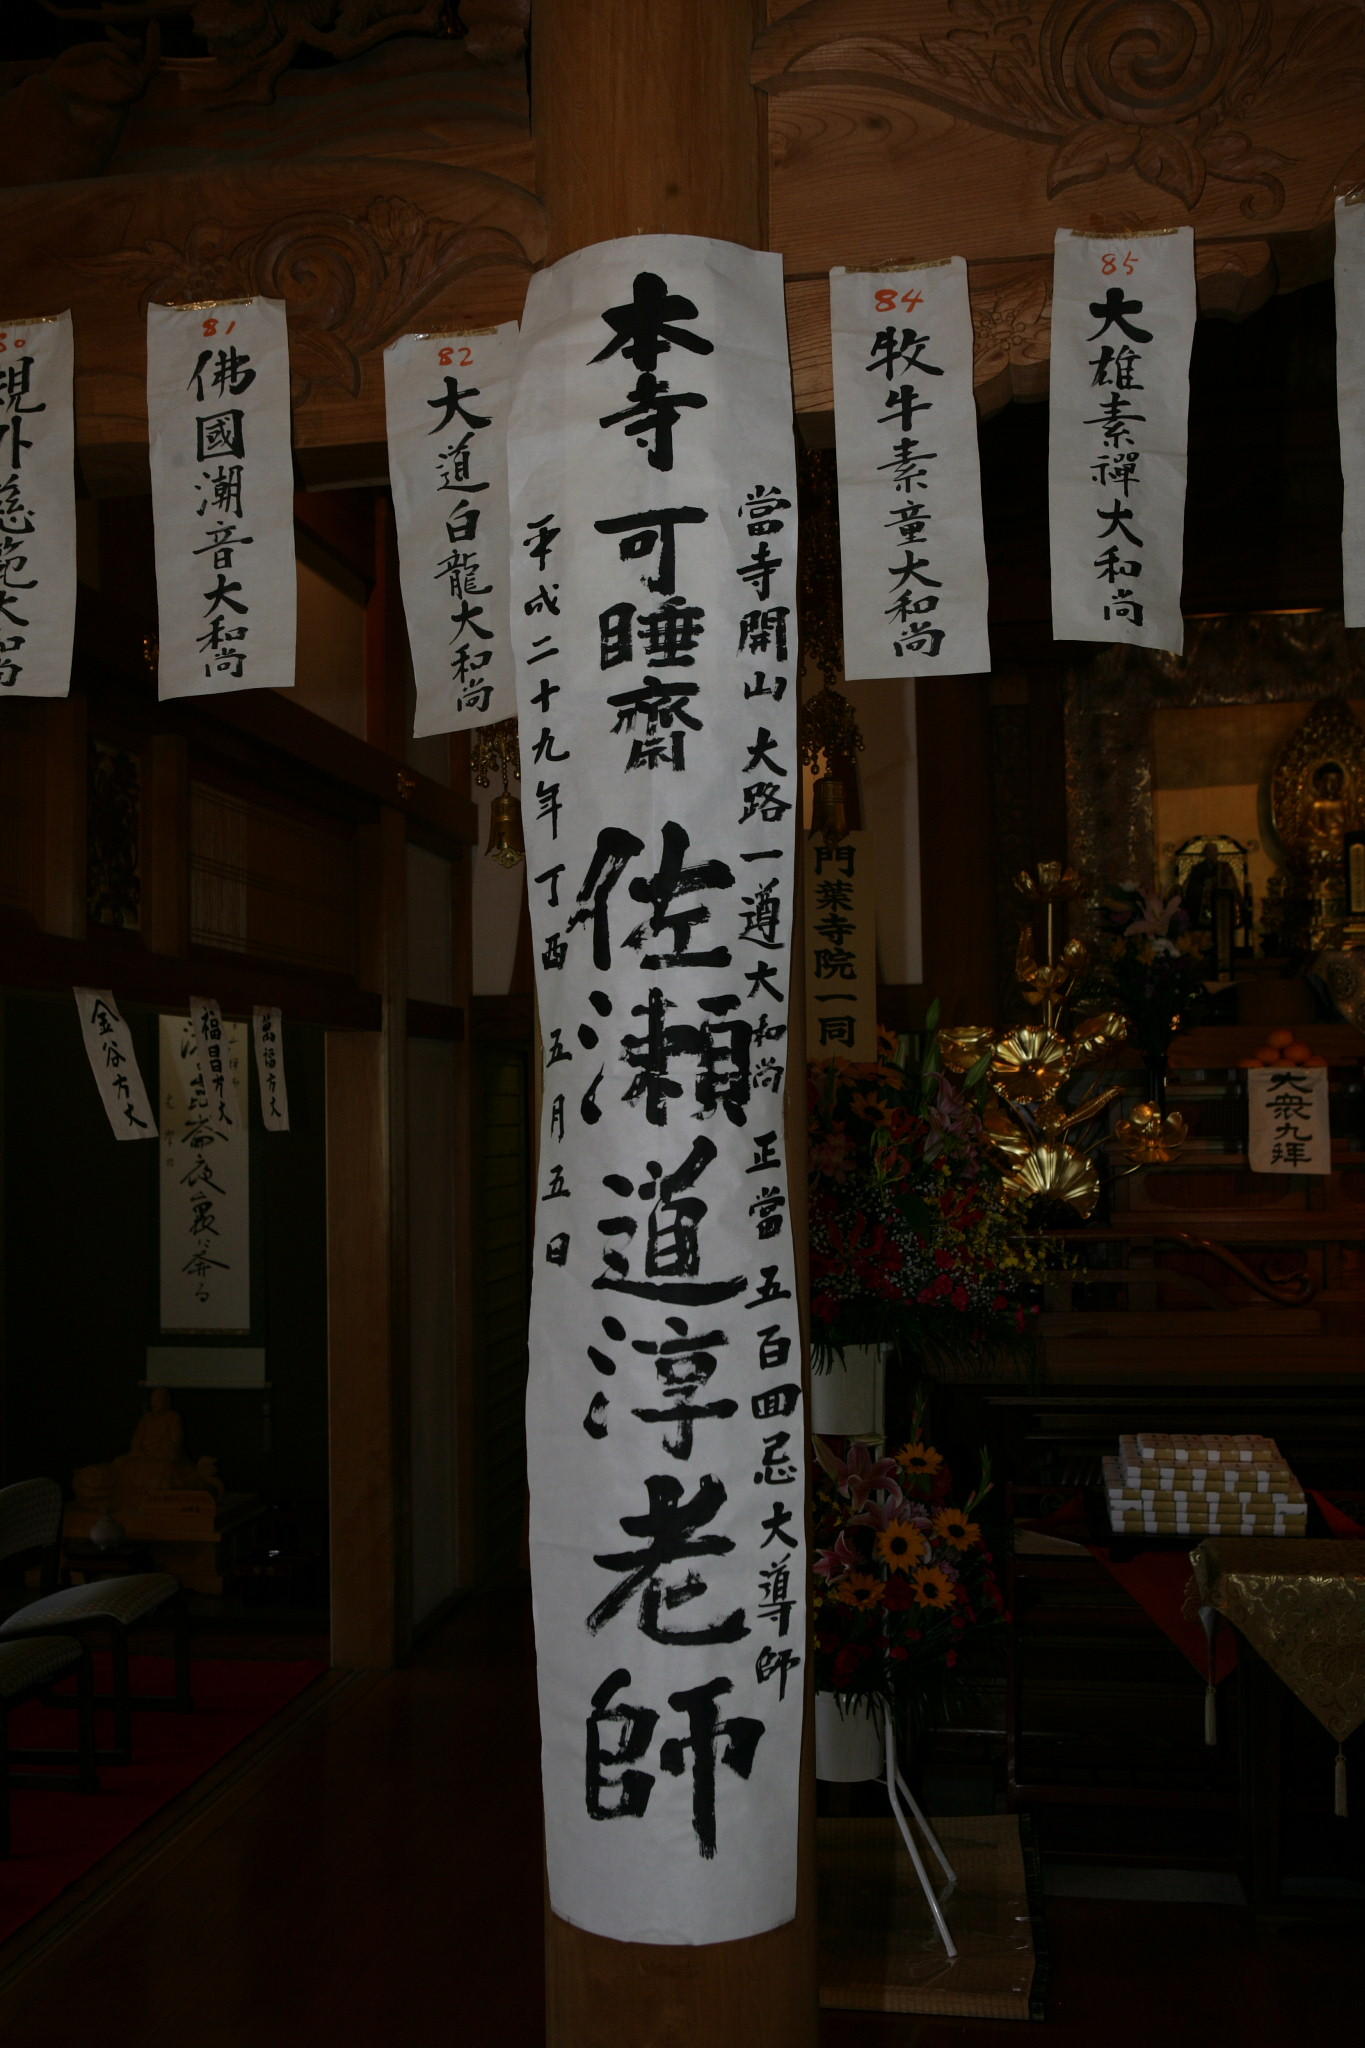 當寺開山 大路一遵大和尚 正當 五百回忌 大導師
本寺 可睡齋 佐瀬道淳老師
平成二十九年 丁酉 五月五日
85
大雄素禪大和尚
84
牧牛素童大和尚
82
大道白龍大和尚
81
佛國潮音大和尚
80
規外慈範大和尚
門葉寺院一同
大衆九拝
萬福方丈
福昌方丈
金谷方丈